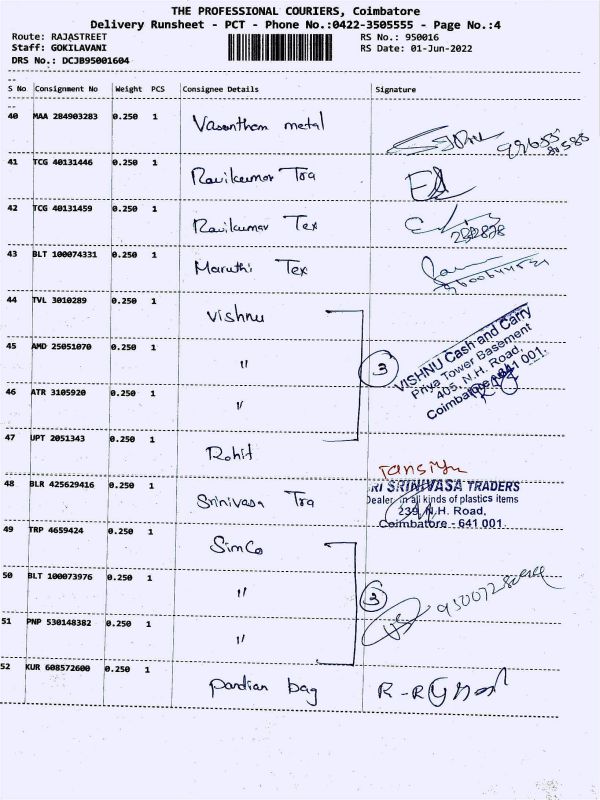 THE PROFESSIONAL COURIERS, Coimbatore
Delivery Runsheet - PCT - Phone No.:0422-3505555 - Page No.:4
Route: RAJASTREET
Staff: GOKILAVANI
DRS No.: DCJB95001604
RS No.: 950016
RS Date: 01-Jun-2022
S No Consignment No Weight PCS Consignee Details Signature
40 MAA 284903283 0.250 1 Vasantham metal
41 TCG 40131446 0.250 1 Ravikumar Tra
42 TCG 40131459 0.250 1 Ravikumar Tex
43 BLT 100074331 0.250 1 Maruthi Tex
44 TVL 3010289 0.250 1 Vishnu
45 AMD 25051070 0.250 1 " 3
VISHNU Cash and Carry
Priya Tower Basement
405, N.H. Road,
Coimbatore-641 001.
46 ATR 3105920 0.250 1 "
47 UPT 2051343 0.250 1 Rohit
48 BLR 425629416 0.250 1 Srinivasa Tra
SRI SRINIVASA TRADERS
Dealer in all kinds of plastics items
239, N.H. Road,
Coimbatore - 641 001.
49 TRP 4659424 0.250 1 SimCo
50 BLT 100073976 0.250 1 " 3
51 PNP 530148382 0.250 1 "
52 KUR 608572600 0.250 1 Pandian bag